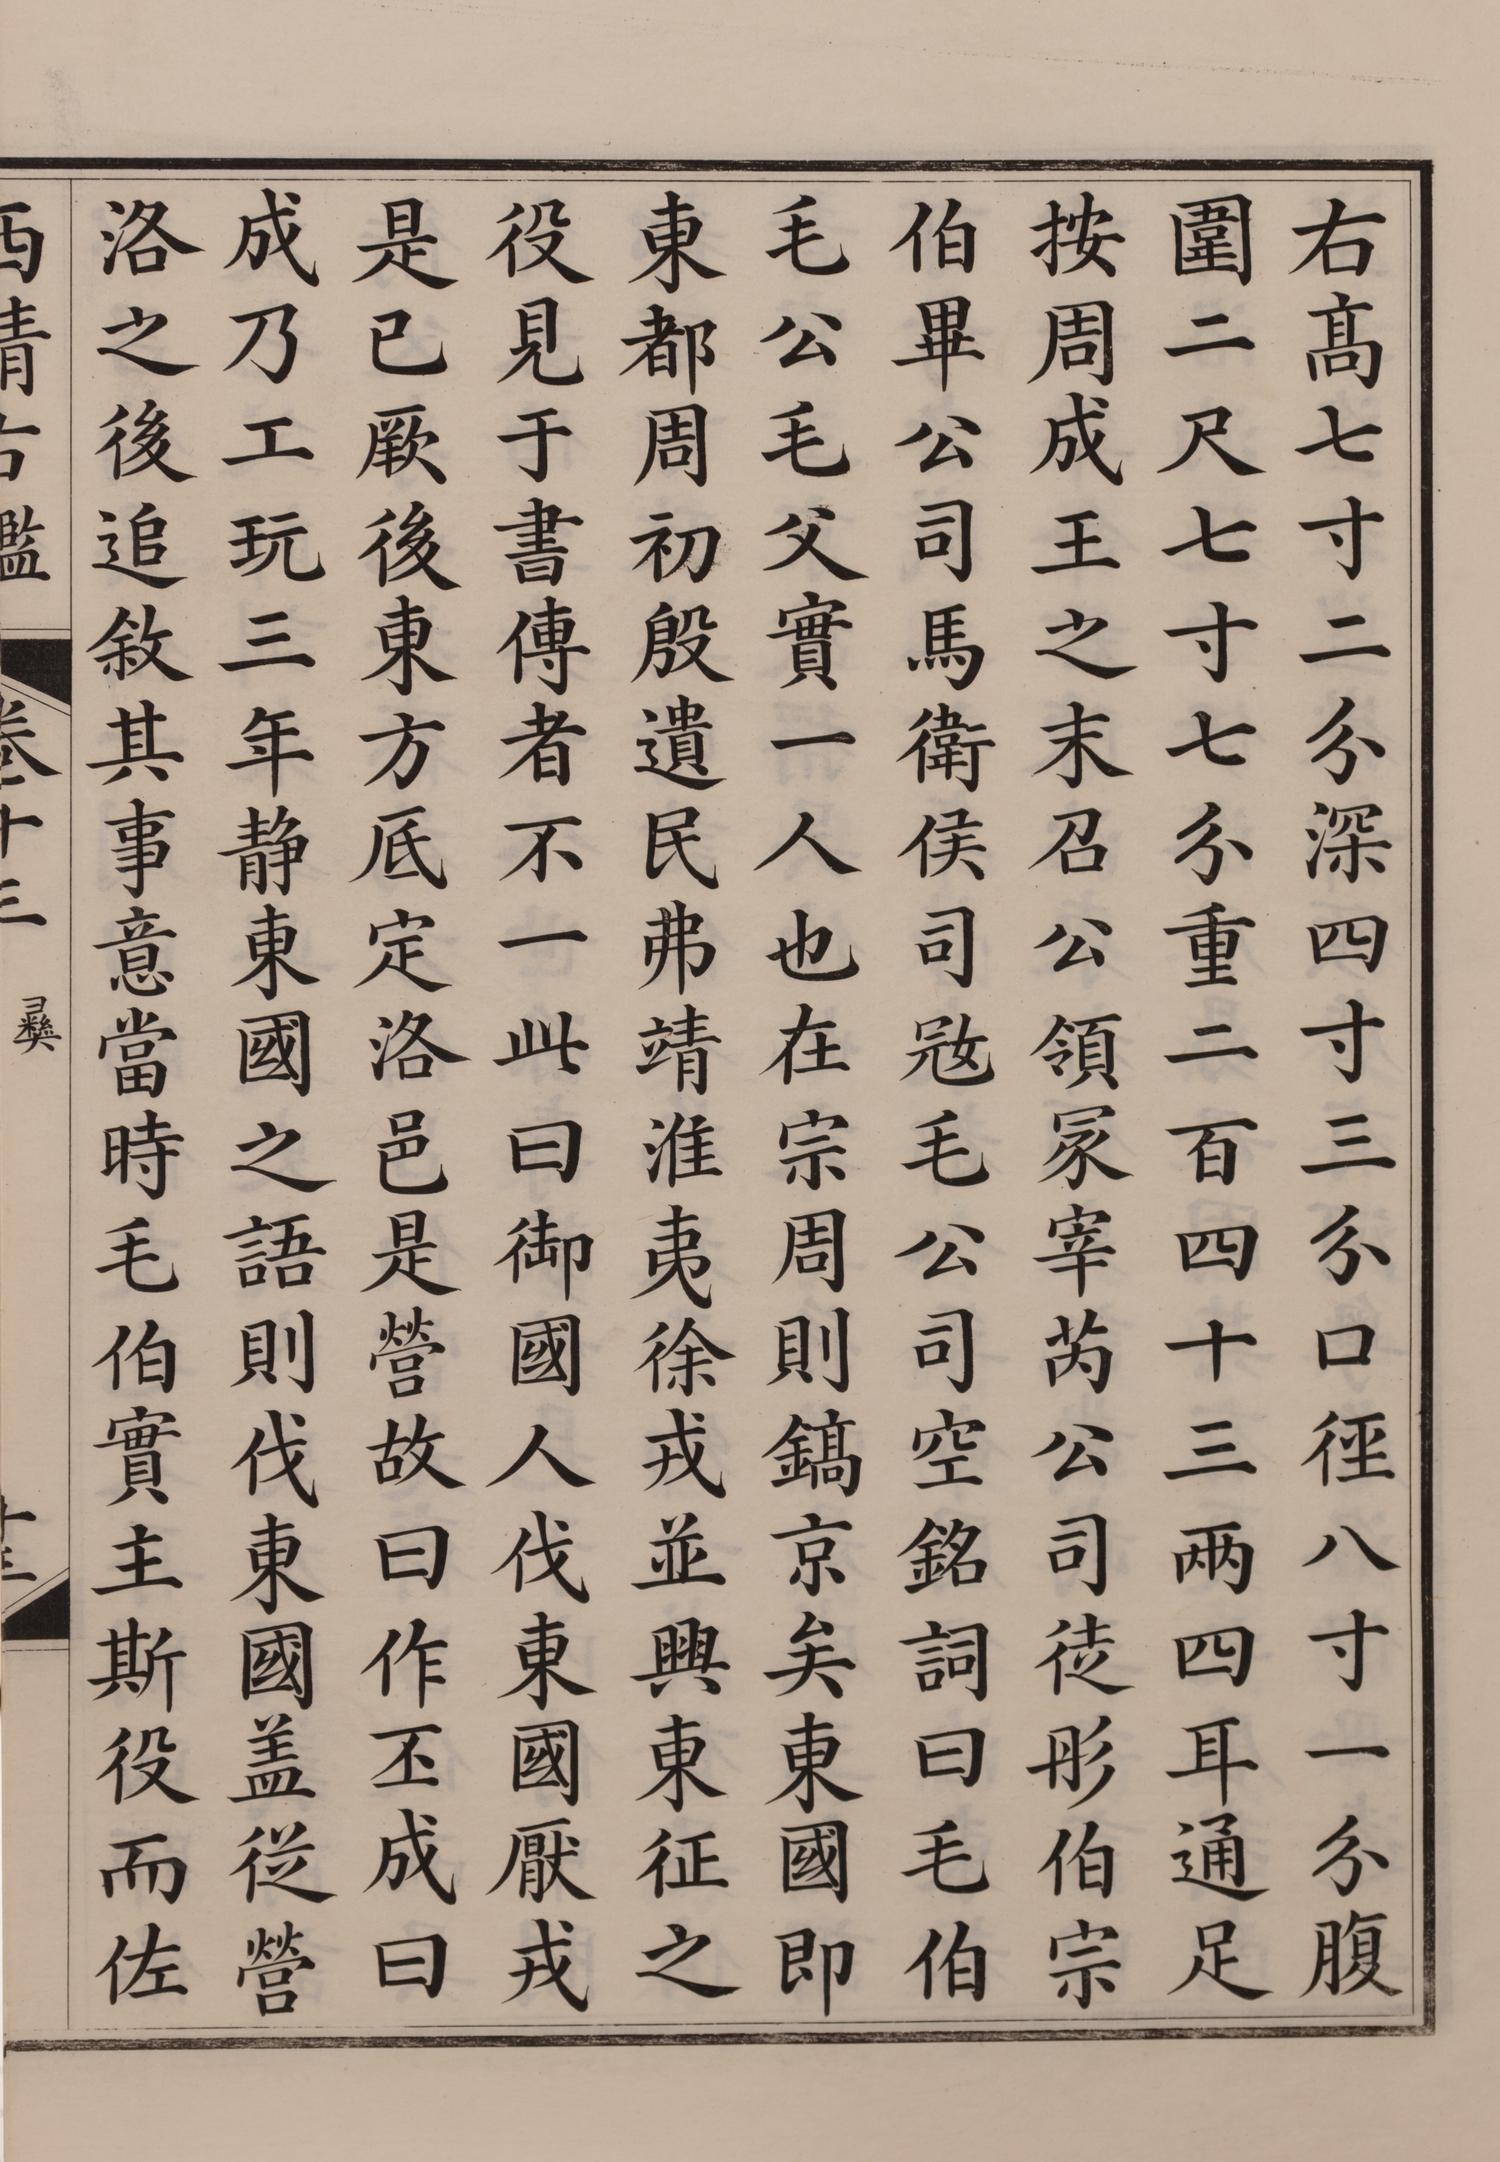 右髙七寸二分深四寸三分口徑八寸一分腹
圍二尺七寸七分重二百四十三兩四耳通足
按周成王之末召公領冢宰芮公司徒彤伯宗
伯畢公司馬衛侯司宼毛公司空銘詞曰毛伯
毛公毛父實一人也在宗周則鎬京矣東國即
東都周初殷遺民弗靖淮夷徐戎並興東征之
役見于書傳者不一此曰御國人伐東國厭戎
是已厥後東方底定洛邑是營故曰作丕成曰
成乃工玩三年静東國之語則伐東國盖從營
洛之後追敘其事意當時毛伯實主斯役而佐
西清古鑑
卷十三
彝
十三